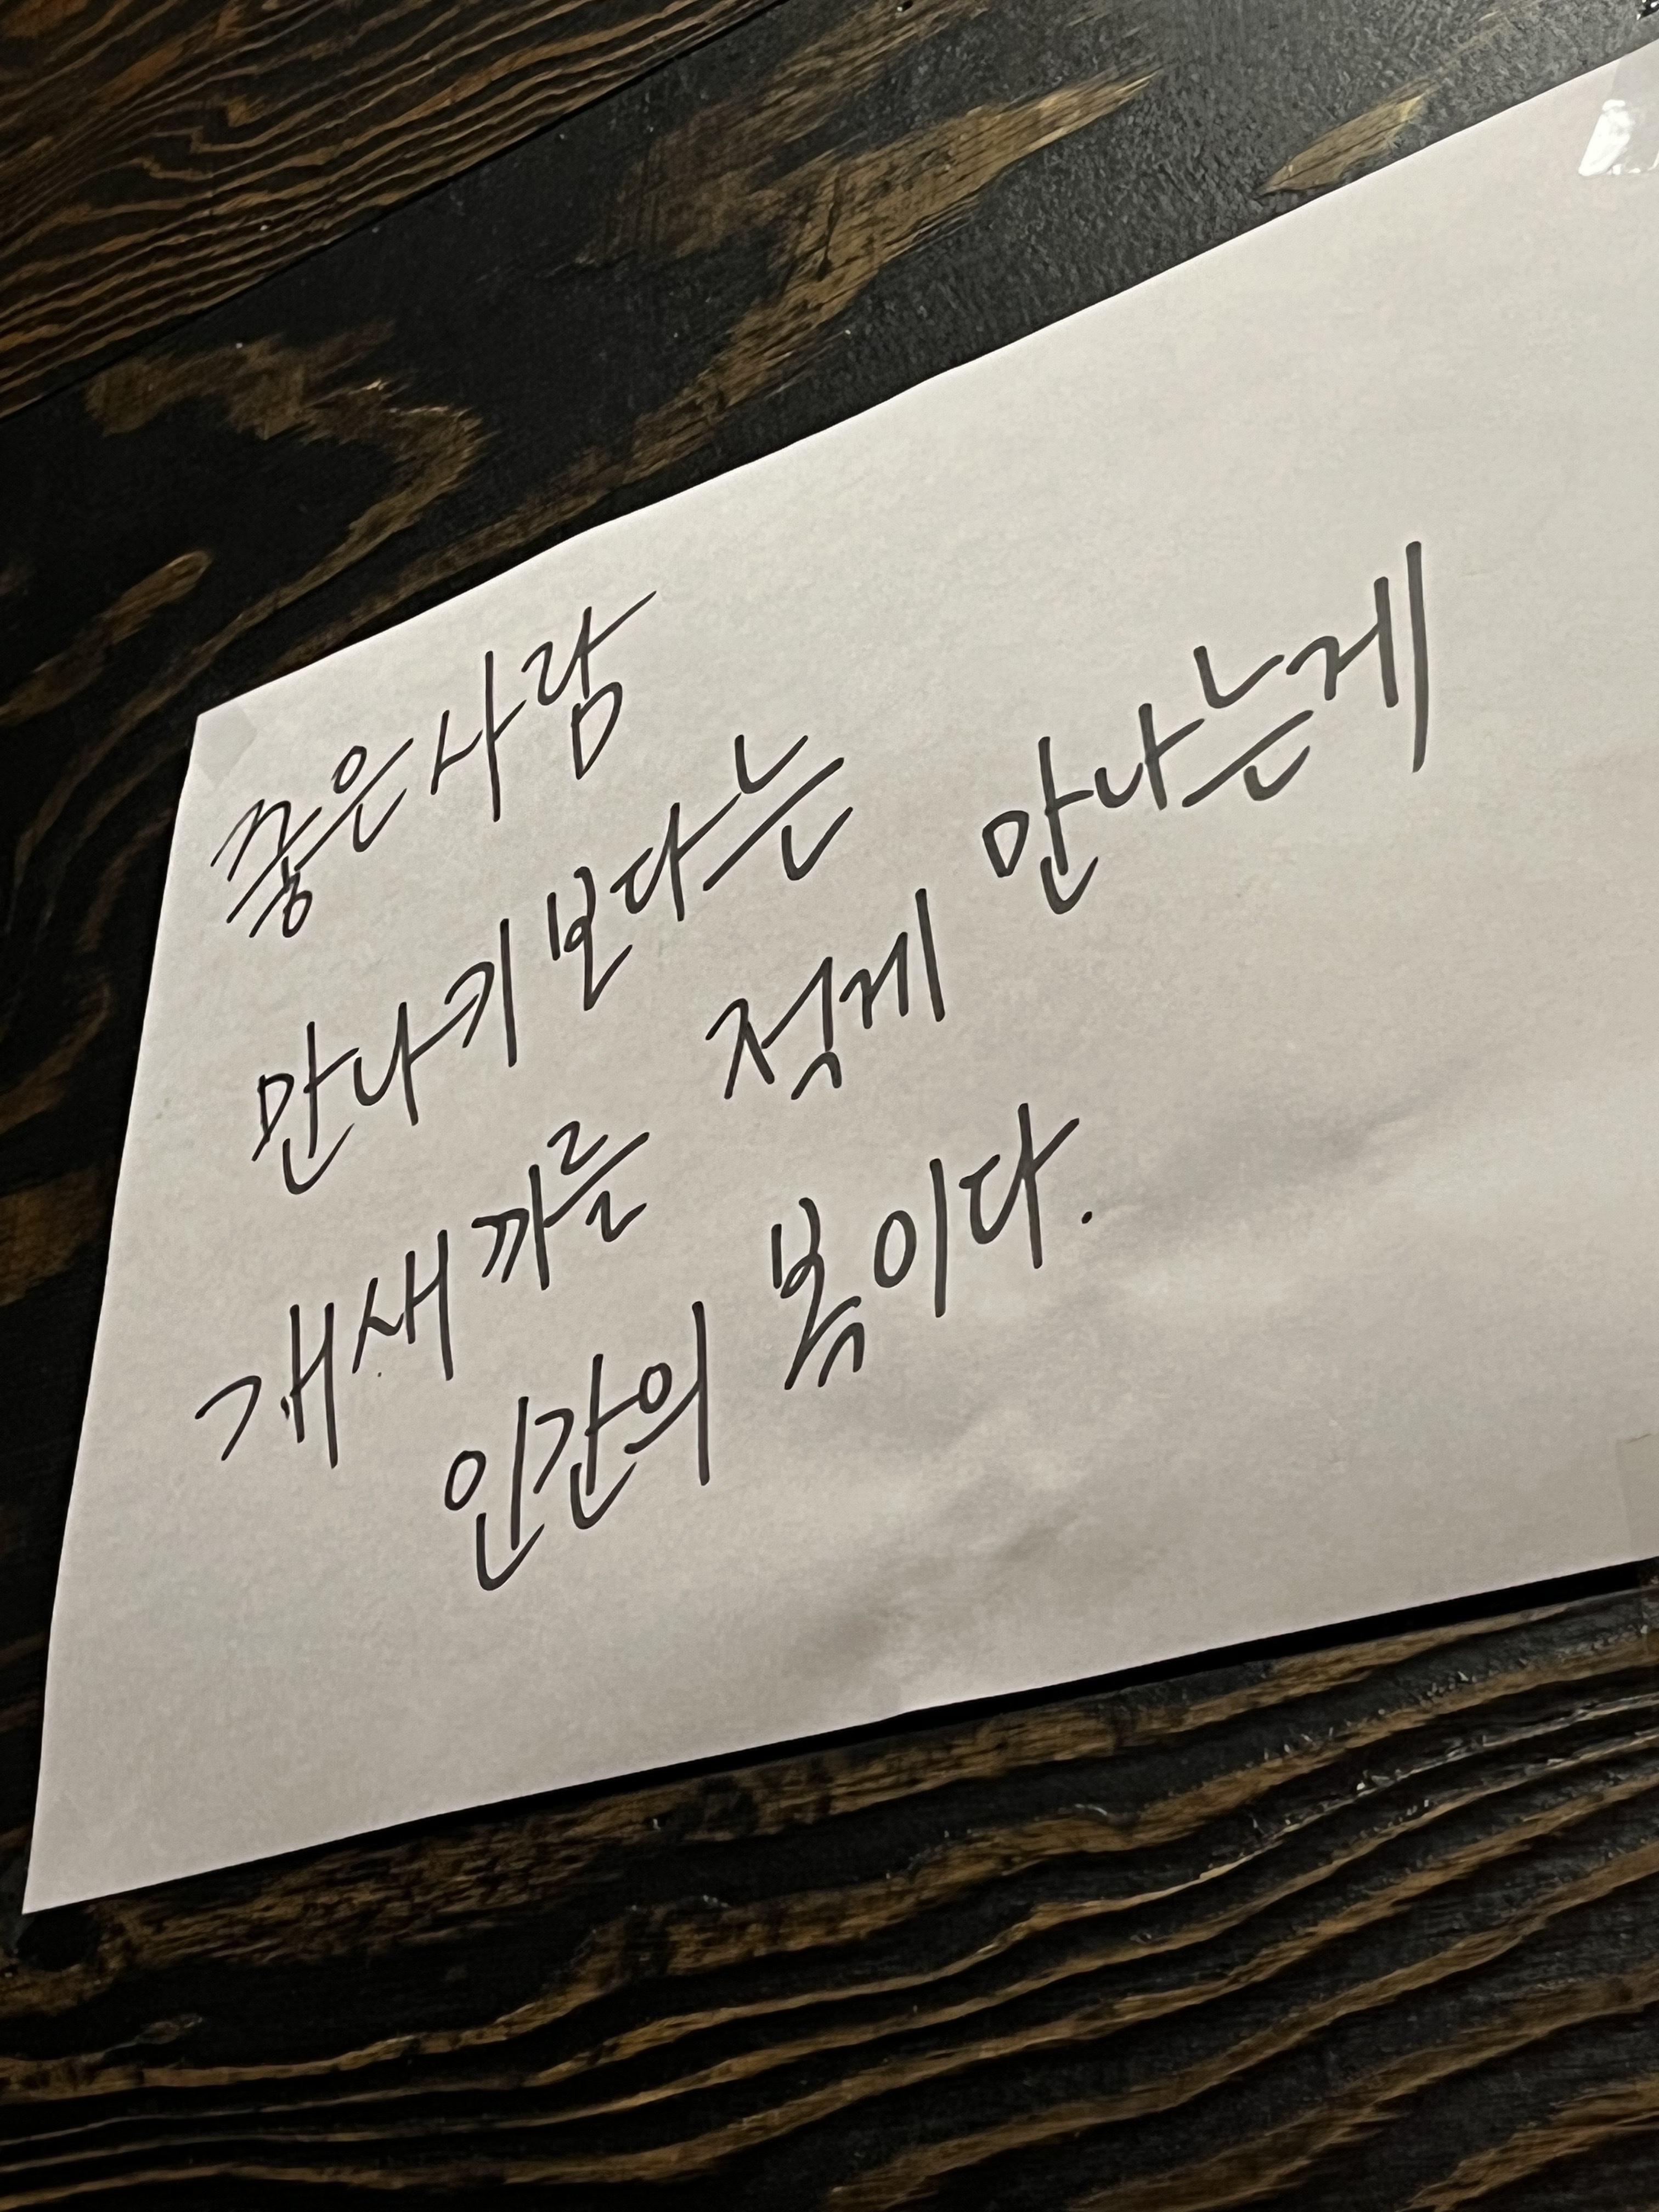 좋은사람
만나기 보다는
개새끼를 적게 만나는게
인간의 복이다.